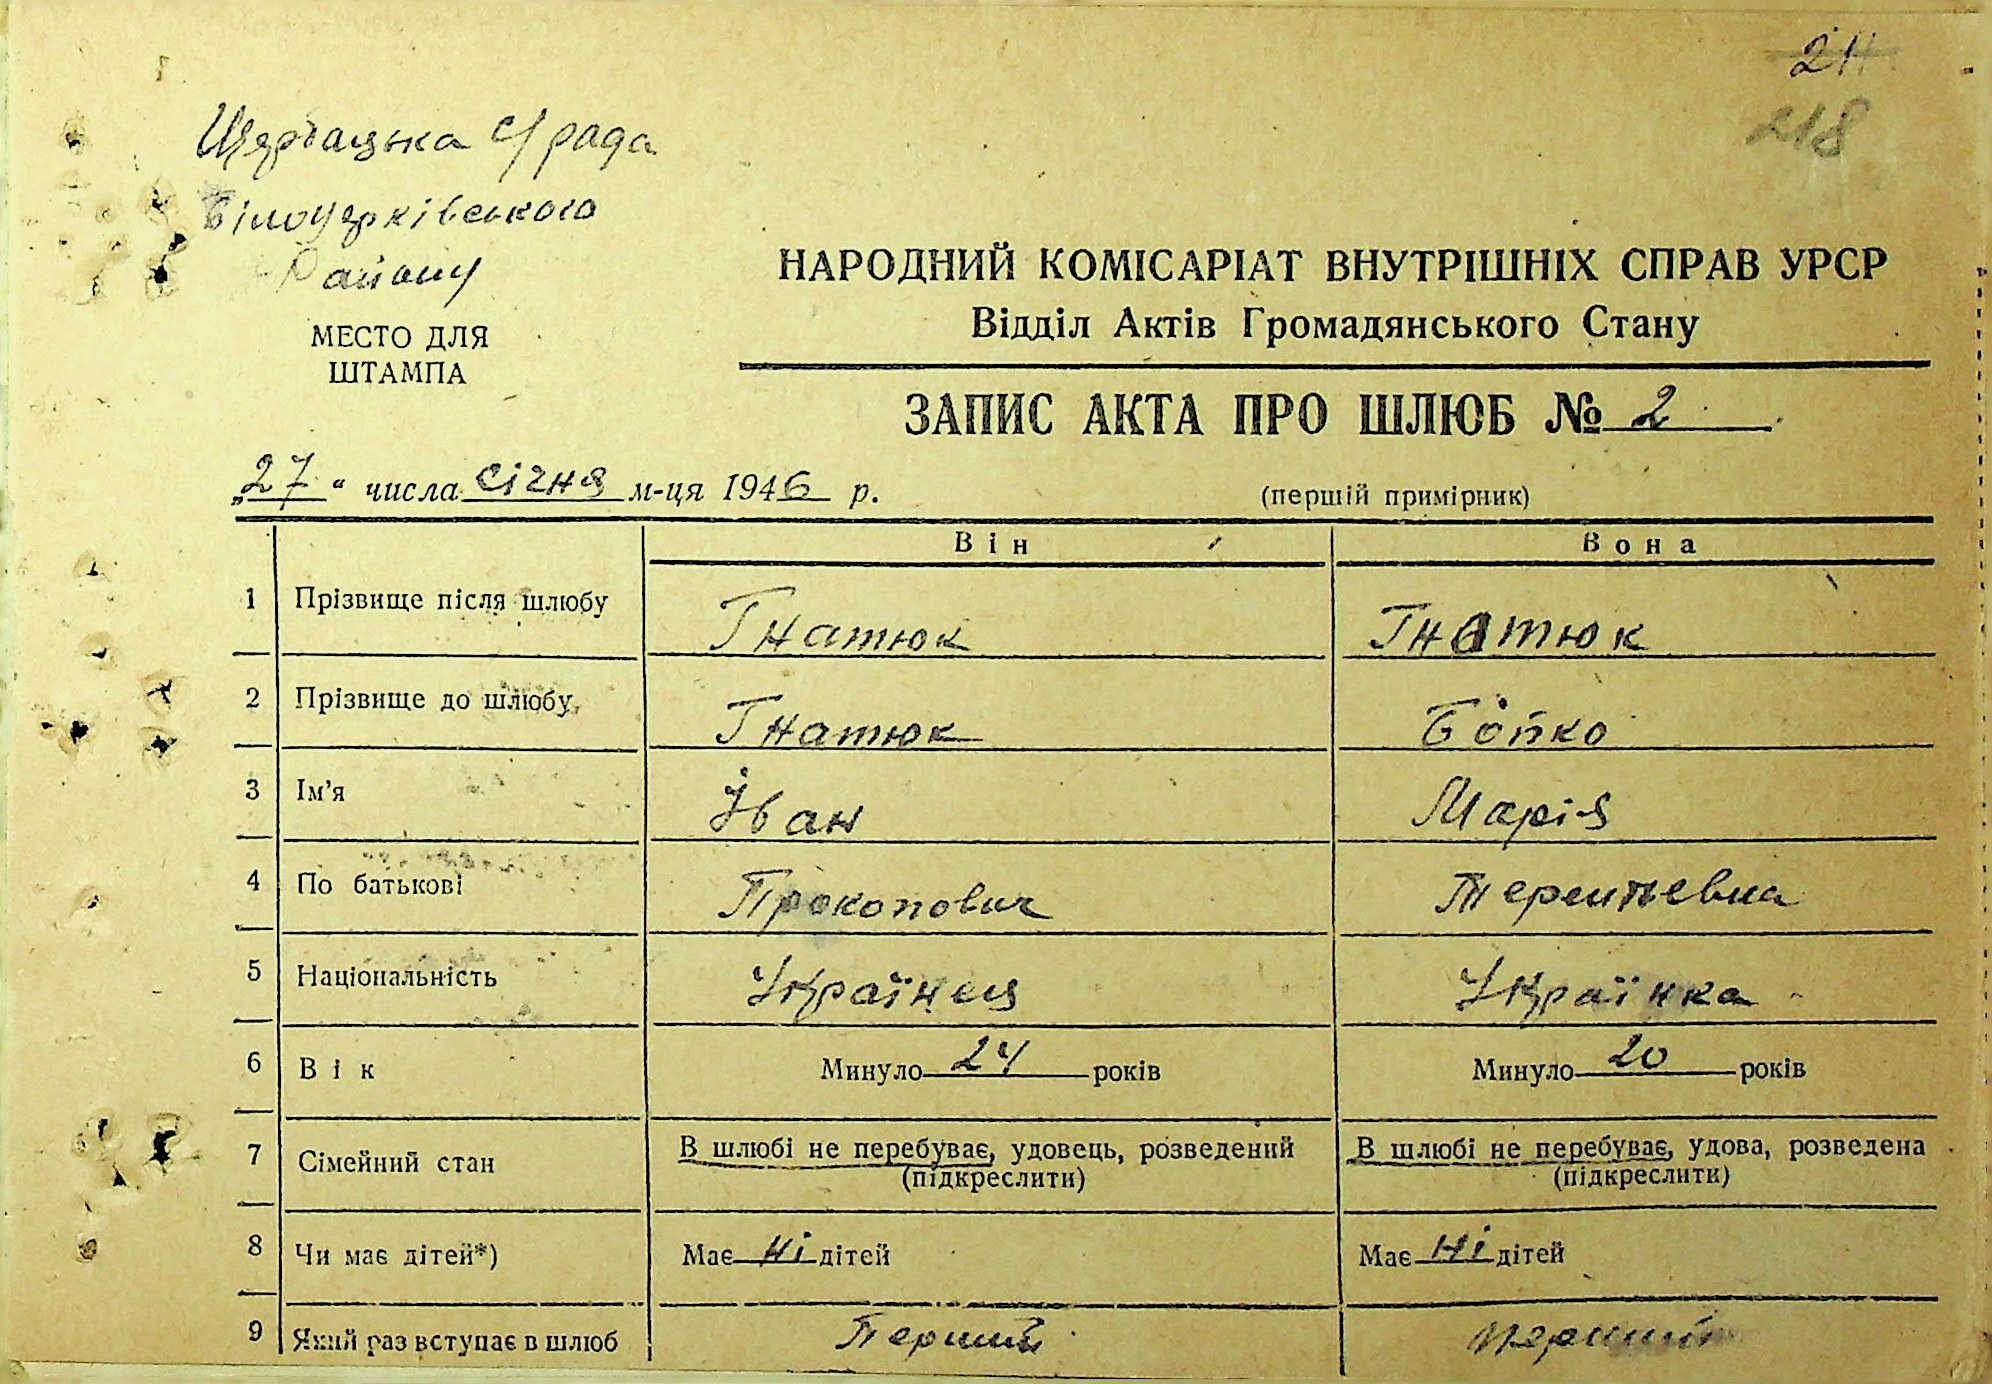 24
218
Щербацька с/рада
Білоцерківського
Району
МЕСТО ДЛЯ
ШТАМПА
НАРОДНИЙ КОМІСАРІАТ ВНУТРІШНІХ СПРАВ УРСР
Відділ Актів Громадянського Стану
ЗАПИС АКТА ПРО ШЛЮБ № 2
„27“ числа січня м-ця 1946 р. (першій примірник)
Він Вона
1 Прізвище після шлюбу Гнатюк Гнатюк
2 Прізвище до шлюбу Гнатюк Бойко
3 Ім'я Іван Марія
4 По батькові Прокопович Терентьевна
5 Національність Українец Українка
6 Вік Минуло 24 років Минуло 20 років
7 Сімейний стан В шлюбі не перебуває, удовець, розведений (підкреслити) В шлюбі не перебуває, удова, розведена (підкреслити)
8 Чи має дітей*) Має ні дітей Має ні дітей
9 Який раз вступає в шлюб Перший перший